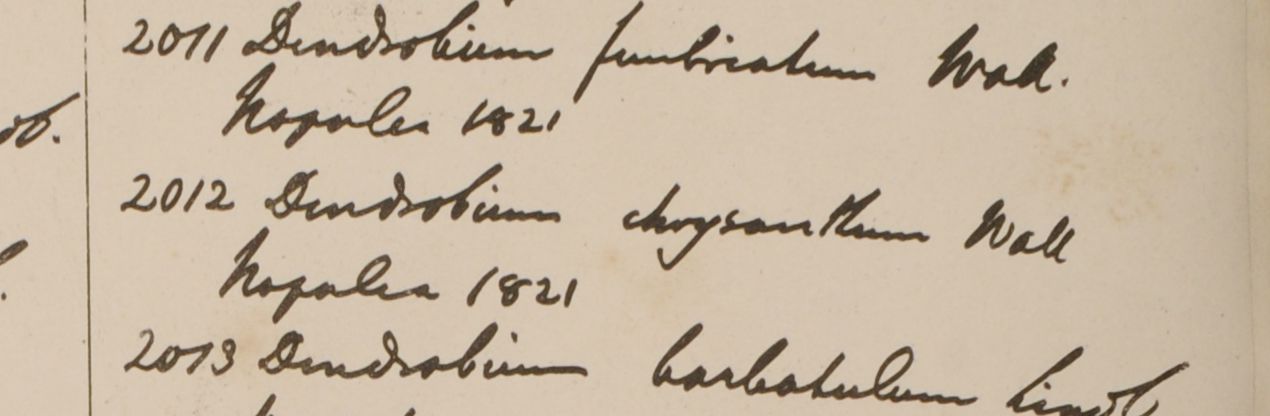 2011 Dendrobium fimbriatum Wall.
Napalia 1821
2012 Dendrobium chrysanthum Wall
Napalia 1821
2013 Dendrobium barbatulum Lindl